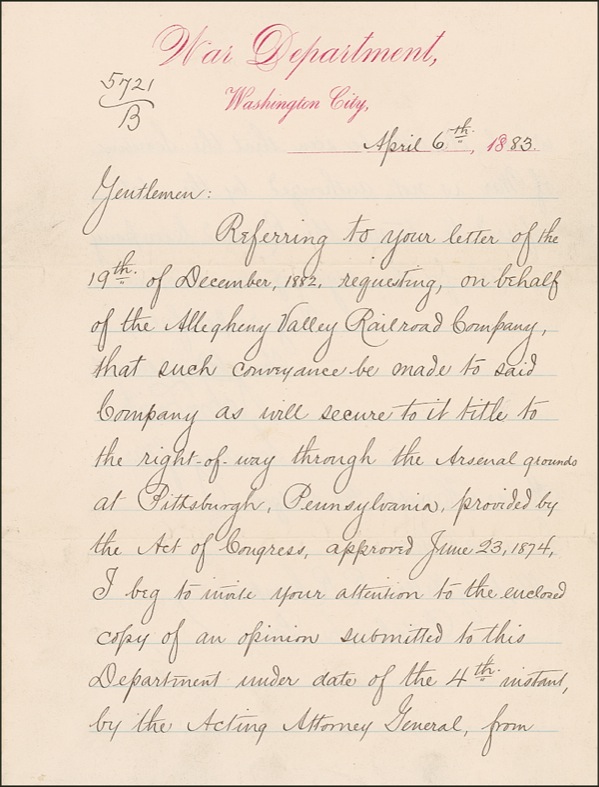 War Department,
5721
B
Washington City,
April 6th, 1883.
Gentlemen:
Referring to your letter of the
19th. of December, 1882, requesting, on behalf
of the Allegheny Valley Railroad Company,
that such conveyance be made to said
Company as will secure to it title to
the right-of-way through the Arsenal grounds
at Pittsburgh, Pennsylvania, provided by
the Act of Congress, approved June 23, 1874,
I beg to invite your attention to the enclosed
copy of an opinion submitted to this
Department under date of the 4th. instant,
by the Acting Attorney General, from